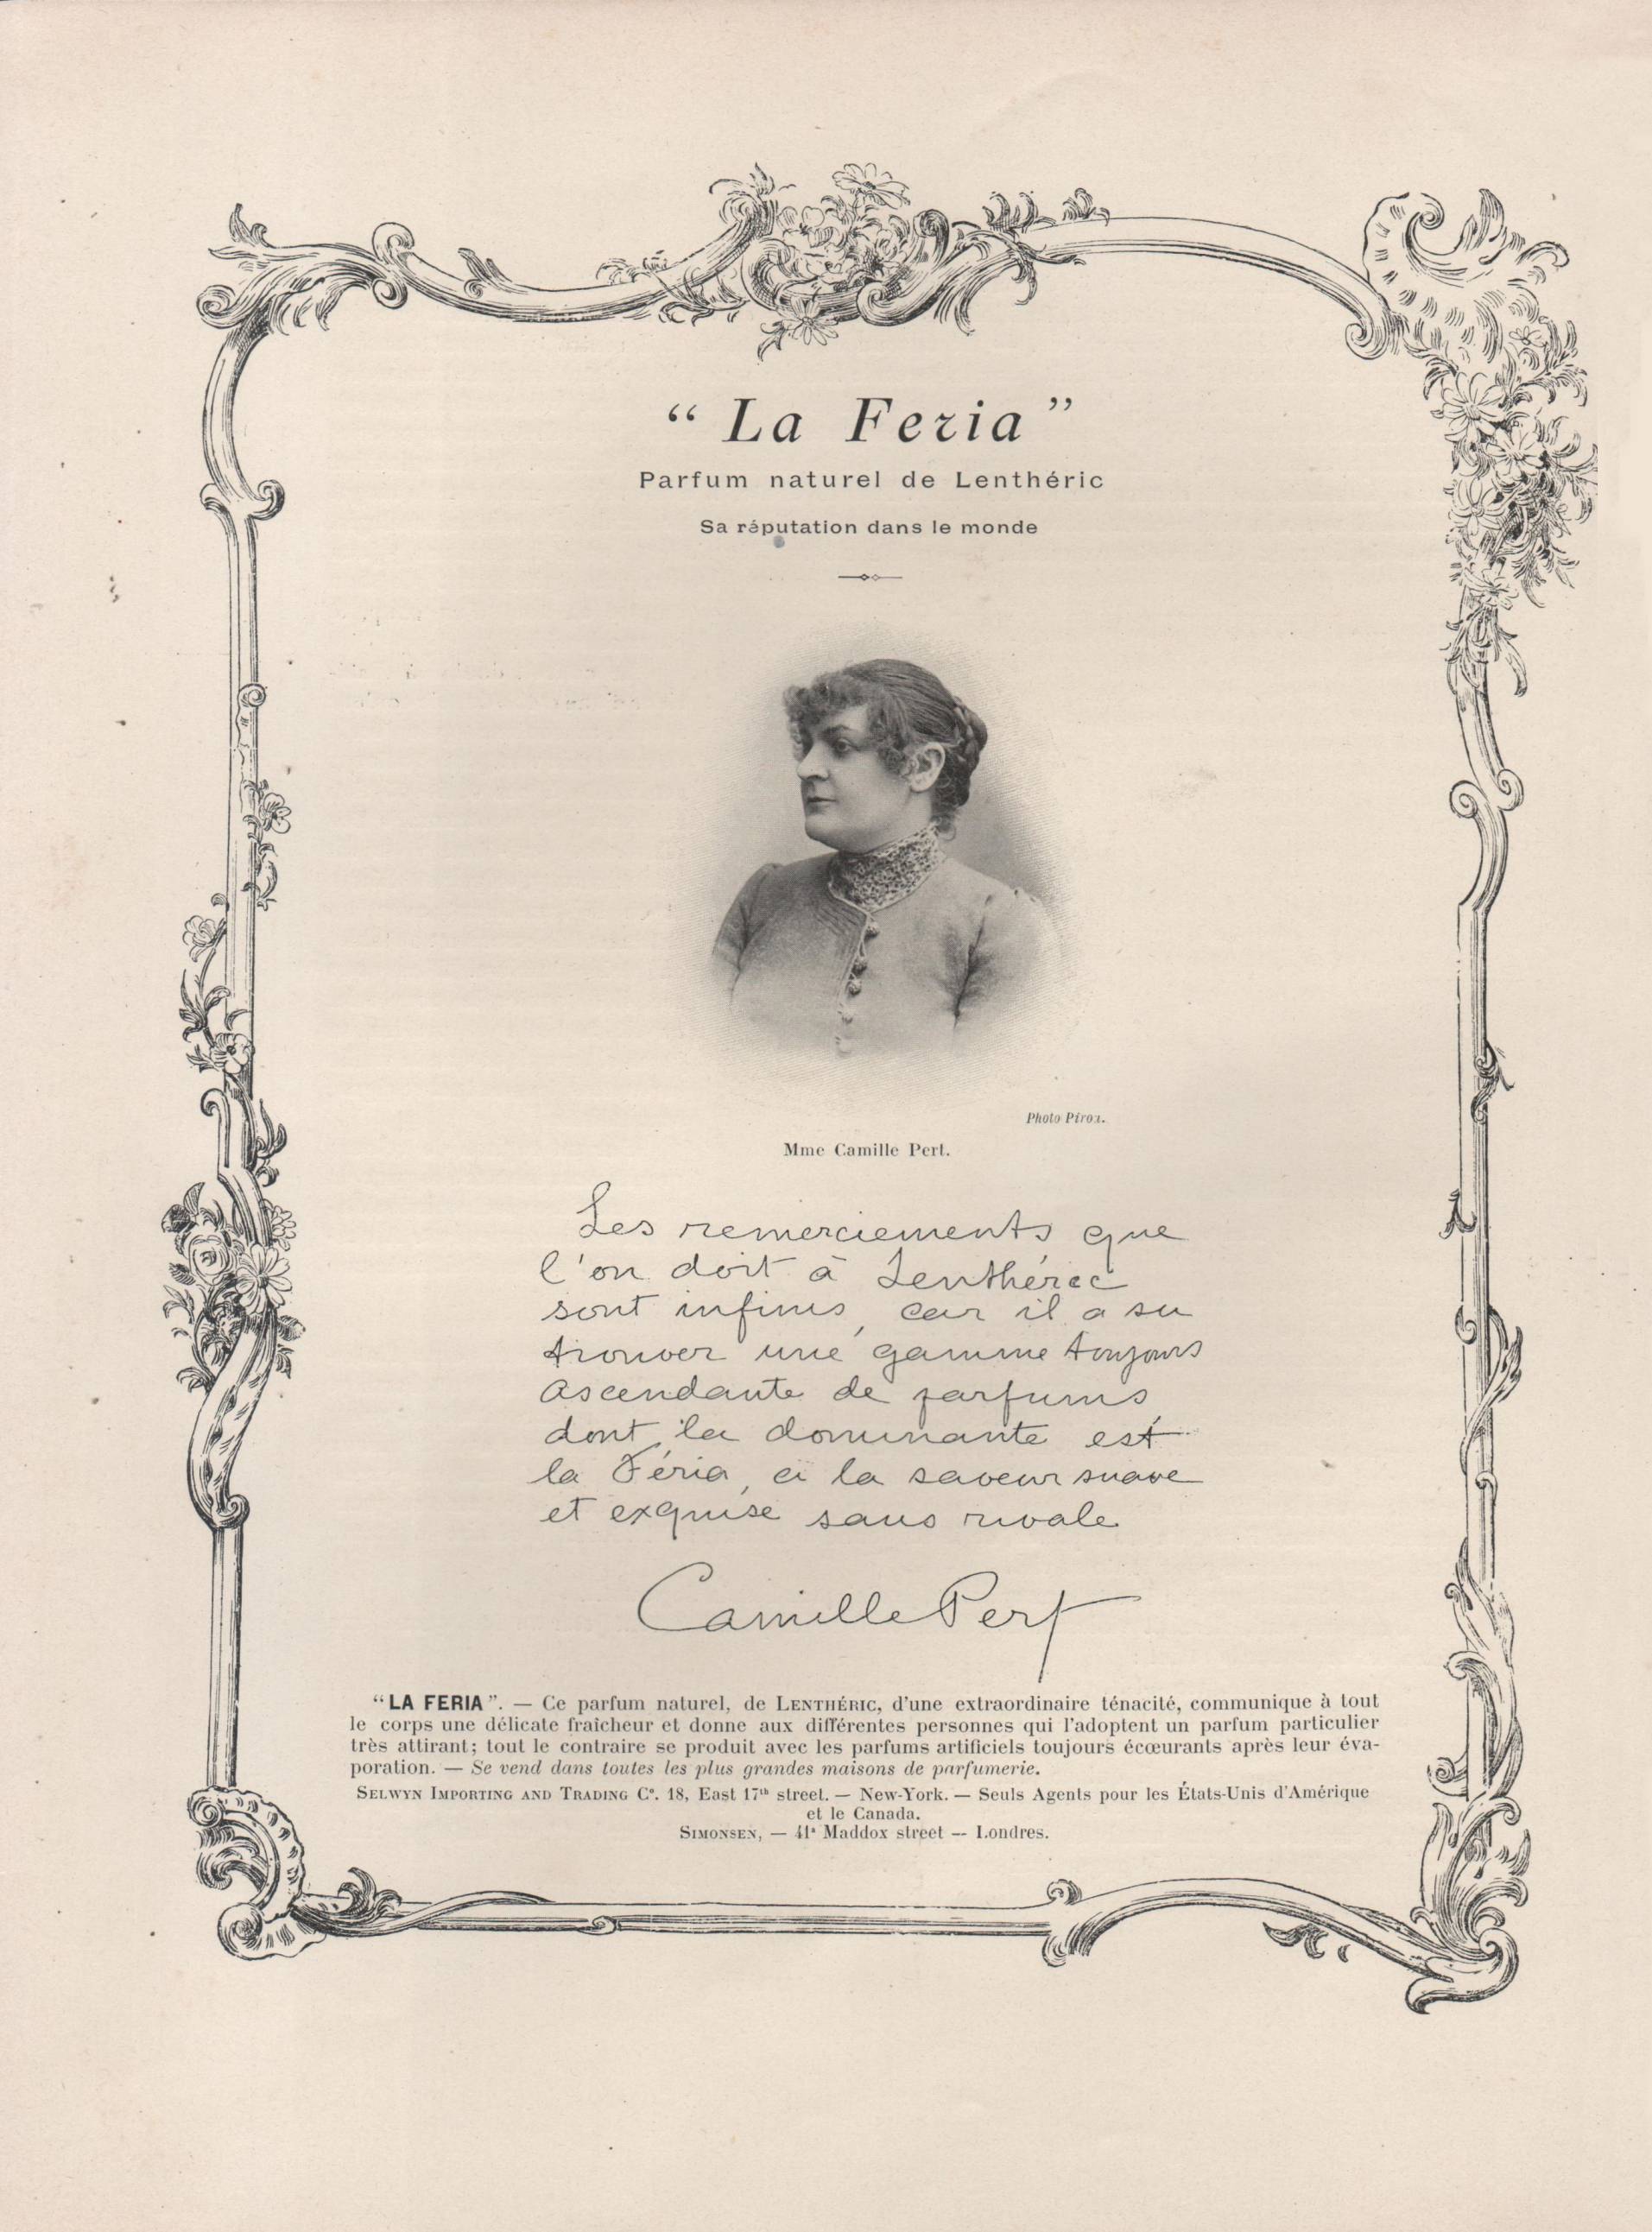 “ La Feria ”
Parfum naturel de Lenthéric
Sa réputation dans le monde
Photo Pirou.
Mme Camille Pert.
Les remerciements que
l'on doit à Lenthéric
sont infinis, car il a su
trouver une gamme toujours
ascendante de parfums
dont la dominante est
la Féria, à la saveur suave
et exquise sans rivale
Camille Pert
“LA FERIA”. — Ce parfum naturel, de LENTHÉRIC, d'une extraordinaire ténacité, communique à tout
le corps une délicate fraîcheur et donne aux différentes personnes qui l'adoptent un parfum particulier
très attirant; tout le contraire se produit avec les parfums artificiels toujours écœurants après leur éva-
poration. — Se vend dans toutes les plus grandes maisons de parfumerie.
SELWYN IMPORTING AND TRADING Cº. 18, East 17th street. — New-York. — Seuls Agents pour les États-Unis d'Amérique
et le Canada.
SIMONSEN, — 41ª Maddox street — Londres.